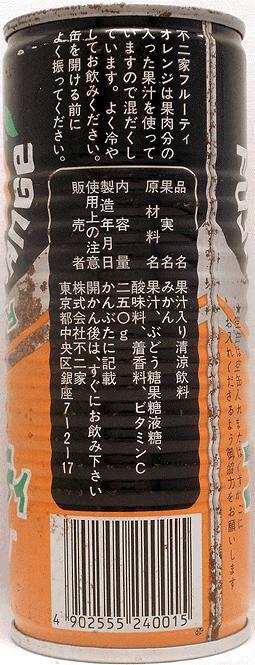 不二家フルーティ
オレンジは果肉分の
入った果汁を使って
いますので混だくし
ています。よく冷や
してお飲みください。
缶を開ける前に
よく振ってください。
品名 果汁入り清涼飲料
果実名 みかん
原材料名 果汁、ぶどう糖果糖液糖、
酸味料、着香料、ビタミンC
内容量 二五〇g
製造年月日 かんぶたに記載
使用上の注意 開かん後は、すぐにお飲み下さい
販売者 株式会社不二家
東京都中央区銀座7-2-17
お入れくださるよう御協力をお願いします
ANGE
ティ
4 902555 240015